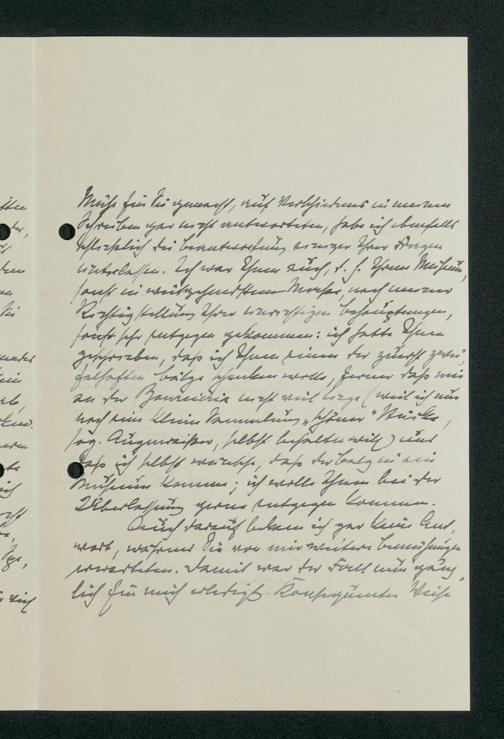 Mühe für Sie gemacht, auf Verschiedenes in meinem
Schreiben gar nicht antworteten, habe ich ebenfalls
schliesslich die Beantwortung einiger Ihrer Fragen
unterlassen. Ich war Ihnen auch, d. h. Ihrem Museum,
sonst in weitgehendstem Masse, nach meiner
Richtigstellung Ihrer unrichtigen Behauptungen,
sehr entgegen gekommen: ich hatte Ihnen
geschrieben, dass ich Ihnen einen der zuerst zwei-
felhaften Bälge schenken wolle, ferner dass mir
an der nicht viel liege (weil ich nur
noch eine kleine Sammlung „schöner" Stücke,
sog. Augenweiden, selbst behalten will) und
dass ich selbst wünsche, dass der Balg in ein
Museum komme; ich wolle Ihnen bei der
Überlassung gerne entgegen kommen.
Auch darauf bekam ich gar keine Ant-
wort, während Sie von mir weitere Bemühungen
erwarteten. Damit war der Fall nun gänz-
lich für mich erledigt. Konsequenter Weise